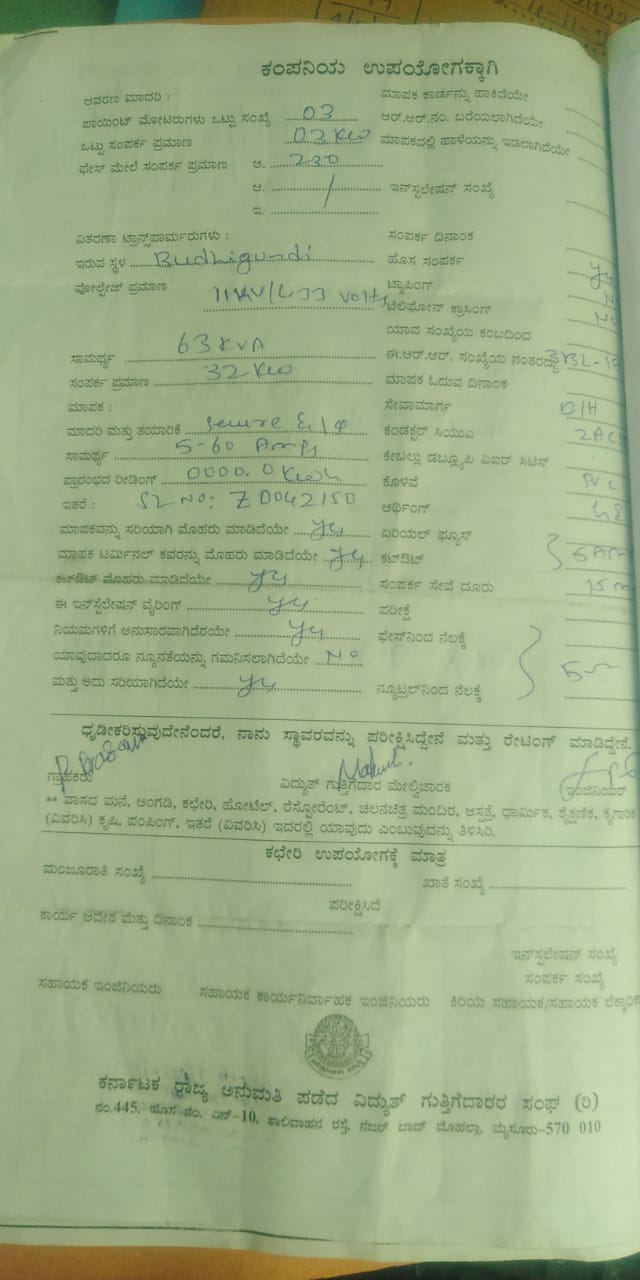 ಕಂಪನಿಯ ಉಪಯೋಗಕ್ಕಾಗಿ
ಆವರಣ ಮಾದರಿ :
ಪಾಯಿಂಟ್ ಮೋಟಿರುಗಳು ಒಟ್ಟು ಸಂಖ್ಯೆ 03
ಒಟ್ಟು ಸಂಪರ್ಕ ಪ್ರಮಾಣ 03 KW
ಫೇಸ್ ಮೇಲೆ ಸಂಪರ್ಕ ಪ್ರಮಾಣ ಅ. 230
ಆ. /
ಇ.
ವಿತರಣಾ ಟ್ರಾನ್ಸ್‌ಪಾರ್ಮರುಗಳು :
ಇರುವ ಸ್ಥಳ Budhigundi
ವೋಲ್ಟೇಜ್ ಪ್ರಮಾಣ 11KV/433 volts
ಸಾಮರ್ಥ್ಯ 63 KVA
ಸಂಪರ್ಕ ಪ್ರಮಾಣ 32 KW
ಮಾಪಕ :
ಮಾದರಿ ಮತ್ತು ತಯಾರಿಕೆ secure
ಸಾಮರ್ಥ್ಯ 5-60 Amps
ಪ್ರಾರಂಭದ ರೀಡಿಂಗ್ 0000.0 Kwh
ಇತರೆ : SL NO: Z0042150
ಮಾಪಕವನ್ನು ಸರಿಯಾಗಿ ಮೊಹರು ಮಾಡಿದೆಯೇ yes
ಮಾಪಕ ಟರ್ಮಿನಲ್ ಕವರನ್ನು ಮೊಹರು ಮಾಡಿದೆಯೇ yes
ಕಟ್‌ಔಟ್ ಮೊಹರು ಮಾಡಿದೆಯೇ yes
ಈ ಇನ್‌ಸ್ಟಲೇಷನ್ ವೈರಿಂಗ್ yes
ನಿಯಮಗಳಿಗೆ ಅನುಸಾರವಾಗಿದೆರಯೇ yes
ಯಾವುದಾದರೂ ನ್ಯೂನತೆಯನ್ನು ಗಮನಿಸಲಾಗಿದೆಯೇ No
ಮತ್ತು ಅದು ಸರಿಯಾಗಿದೆಯೇ yes
ಮಾಪಕ ಕಾರ್ಡನ್ನು ಹಾಕಿದೆಯೇ
ಆರ್.ಆರ್.ನಂ. ಬರೆಯಲಾಗಿದೆಯೇ
ಮಾಪಕದಲ್ಲಿ ಹಾಳೆಯನ್ನು ಇಡಲಾಗಿದೆಯೇ
ಇನ್‌ಸ್ಟಲೇಷನ್ ಸಂಖ್ಯೆ
ಸಂಪರ್ಕ ದಿನಾಂಕ
ಹೊಸ ಸಂಪರ್ಕ yes
ಟ್ಯಾಪಿಂಗ್
ಟೆಲಿಫೋನ್ ಕ್ರಾಸಿಂಗ್ No
ಯಾವ ಸಂಖ್ಯೆಯ ಕಂಬದಿಂದ
ಈ.ಆರ್.ಆರ್. ಸಂಖ್ಯೆಯ ನಂತರದ್ದು
ಮಾಪಕ ಓದುವ ದಿನಾಂಕ
ಸೇವಾಮಾರ್ಗ O/H
ಕಂಡಕ್ಟರ್ ಸಿಯುಎ
ಕೇಬಲ್ಲು ಡಬ್ಲ್ಯೂಪಿ ಏಐರ್ ಸಿಟಿಸ್
ಕೊಳವೆ PVC
ಅರ್ಥಿಂಗ್
ಏರಿಯಲ್ ಫ್ಯೂಸ್
ಕಟ್‌ಔಟ್
ಸಂಪರ್ಕ ಸೇವೆ ದೂರು 15 m
ಪರೀಕ್ಷೆ
ಫೇಸ್‌ನಿಂದ ನೆಲಕ್ಕೆ
ನ್ಯೂಟ್ರಲ್‌ನಿಂದ ನೆಲಕ್ಕೆ
ಧೃಡೀಕರಿಸ್ತುವುದೇನೆಂದರೆ, ನಾನು ಸ್ಥಾವರವನ್ನು ಪರೀಕ್ಷಿಸಿದ್ದೇನೆ ಮತ್ತು ರೇಟಿಂಗ್ ಮಾಡಿದ್ದೇನೆ.
ಗ್ರಾಹಕರು ವಿದ್ಯುತ್ ಗುತ್ತಿಗೆದಾರ ಮೇಲ್ವಿಚಾರಕ ಇಂಜಿನಿಯರ್
** ವಾಸದ ಮನೆ, ಅಂಗಡಿ, ಕಛೇರಿ, ಹೋಟೆಲ್, ರೆಸ್ಟೋರೆಂಟ್, ಚಲನಚಿತ್ರ ಮಂದಿರ, ಆಸ್ಪತ್ರೆ, ಧಾರ್ಮಿಕ, ಶೈಕ್ಷಣಿಕ, ಕೈಗಾರಿಕ
(ವಿವರಿಸಿ) ಕೃಷಿ, ಪಂಪಿಂಗ್, ಇತರೆ (ವಿವರಿಸಿ) ಇದರಲ್ಲಿ ಯಾವುದು ಎಂಬುವುದನ್ನು ತಿಳಿಸಿರಿ.
ಕಛೇರಿ ಉಪಯೋಗಕ್ಕೆ ಮಾತ್ರ
ಮಂಜೂರಾತಿ ಸಂಖ್ಯೆ ಖಾತೆ ಸಂಖ್ಯೆ
ಪರೀಕ್ಷಿಸಿದೆ
ಕಾರ್ಯ ಆದೇಶ ಮತ್ತು ದಿನಾಂಕ
ಇನ್‌ಸ್ಟಲೇಷನ್ ಸಂಖ್ಯೆ
ಸಂಪರ್ಕ ಸಂಖ್ಯೆ
ಸಹಾಯಕ ಇಂಜಿನಿಯರು ಸಹಾಯಕ ಕಾರ್ಯನಿರ್ವಾಹಕ ಇಂಜಿನಿಯರು ಕಿರಿಯ ಸಹಾಯಕ/ಸಹಾಯಕ
ಕರ್ನಾಟಕ ರಾಜ್ಯ ಅನುಮತಿ ಪಡೆದ ವಿದ್ಯುತ್ ಗುತ್ತಿಗೆದಾರರ ಸಂಘ (ರಿ)
ನಂ.445, ಹೊಸ ನಂ. ಎನ್-10, ಶಾಲಿವಾಹನ ರಸ್ತೆ, ನಜರ್ ಬಾದ್ ಮೊಹಲ್ಲಾ, ಮೈಸೂರು-570 010